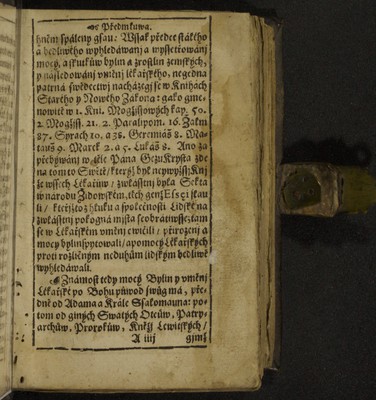 Předmluwa.
hněm spáleny gsau: Wssak předce stálého
a bedliwého wyhledáwanj a wyssetřowánj
mocy, a skutků bylin a zrostlin zemských,
y následowánj vměnj lékařského, negedna
patrná swědectwj nacházegj se w Knihách
Starého y Nowého Zákona: gako gme-
nowitě w 1. Kni. Mogžjssowých kap. 50.
2. Mogžjss. 21. 2. Paralipom. 16. Žalm
87. Syrach 10. a 38. Geremiáš 8. Ma-
tauš 9. Marek 2. a 5. Lukáš 8. Ano za
přebýwánj w těle Pána GezuKrysta zde
na tomto Swětě / kterýž byl neywyžssj Knj
že wssech Lékařůw / zwlásstnj byla Sekta
w národu Židowském, těch genž Essei slau
li / kteřjžto z hluku a společnosti Lidské na
zwlásstnj pokogná místa se obrátiwsse, tam
se w Lékařském vměnj cwičili / přirozenj a
mocy bylin spytowali / a pomocy Lékařských
proti rozličným neduhům lidským bedliwě
wyhledáwali.
Známost tedy mocy Bylin y vměnj
Lékařské po Bohu půwod swůg má, pře-
dně od Adama a Krále Ssalomauna: po-
tom od giných Swatých Otcůw, Patry-
archůw, Prorokůw, Kněžj Lewitských /
A iiij
gimž